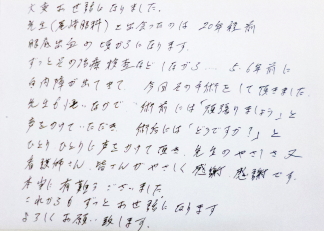 大変お世話になりました。
先生(尾澤眼科)と出会ったのは 20年程前
眼底出血の頃からになります。
ずっとその治療 検査などしながら… 5.6年前に
白内障が出てきて、今回その手術をして頂きました。
先生も 術前には「頑張りましょう」と
声をかけていただき 術后には「どうですか?」と
ひとりひとりに声をかけて頂き、先生のやさしさ 又
看護師さん、皆さんがやさしく 感謝、感謝です。
本当に有難うございました
これからもずっとお世話になります
よろしくお願い致します。